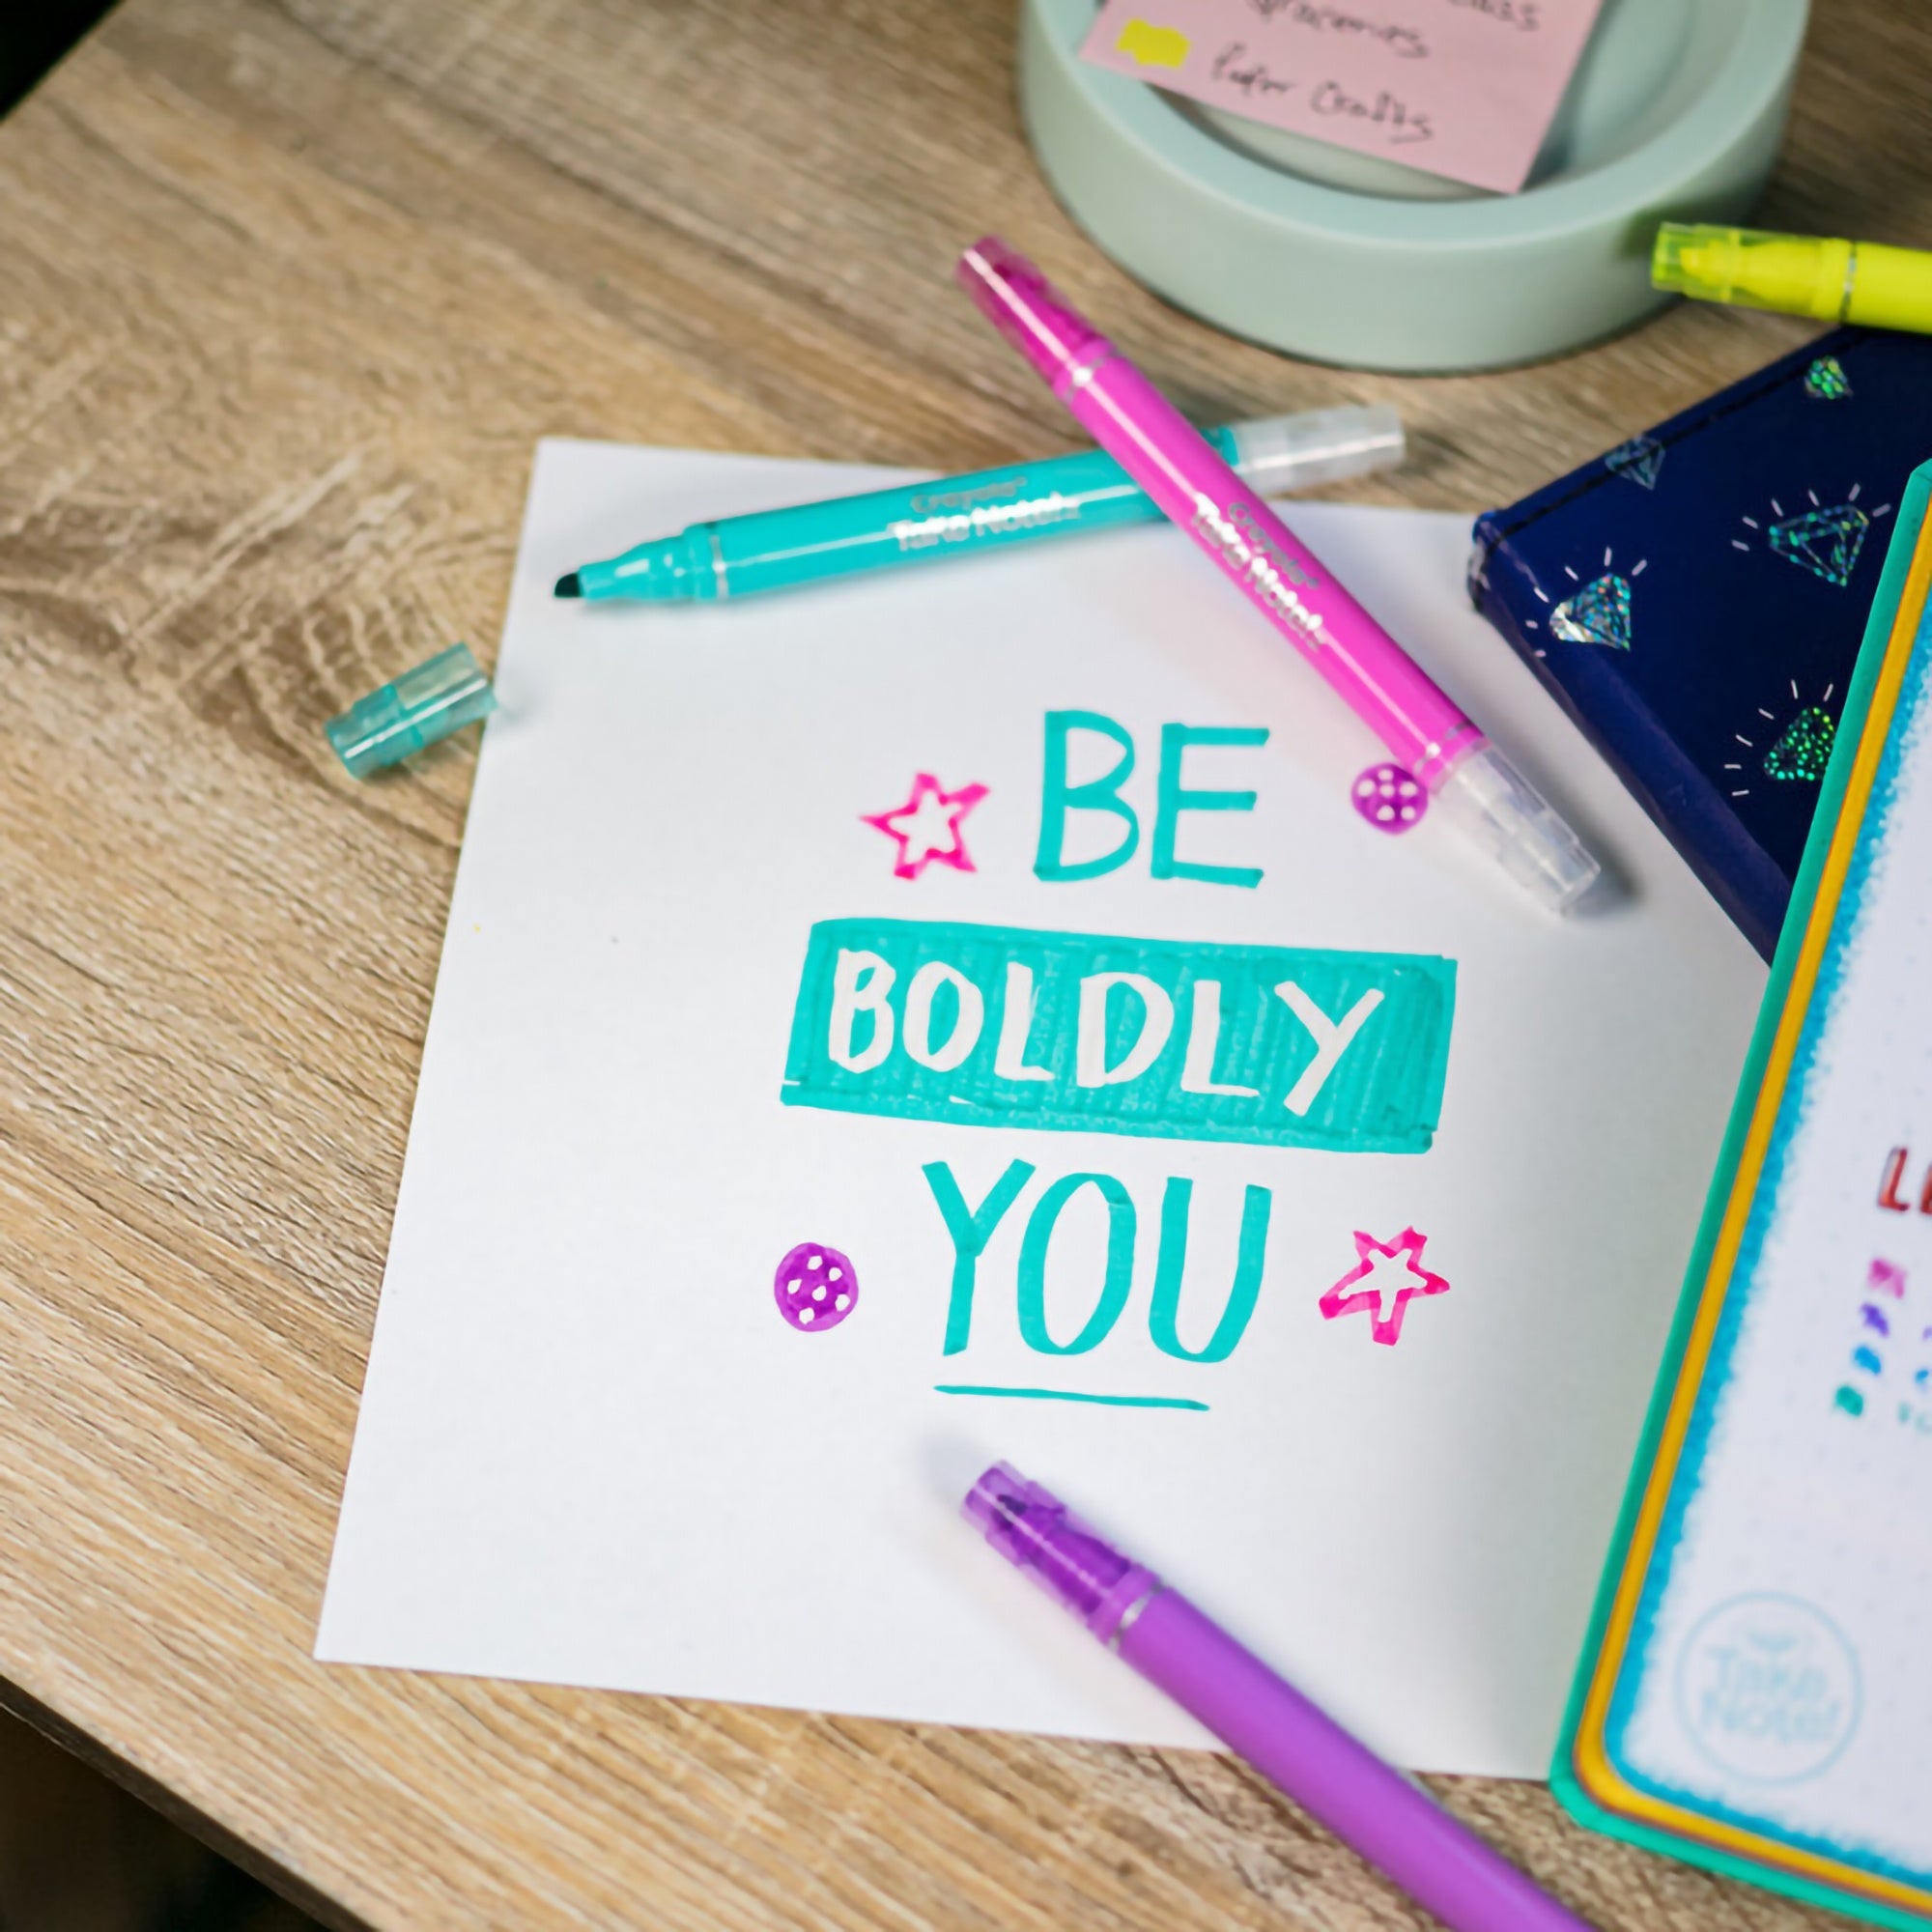 groceries
Crayola
Take Note!
Crayola
Take Note!
BE
BOLDLY
YOU
Take
Note!